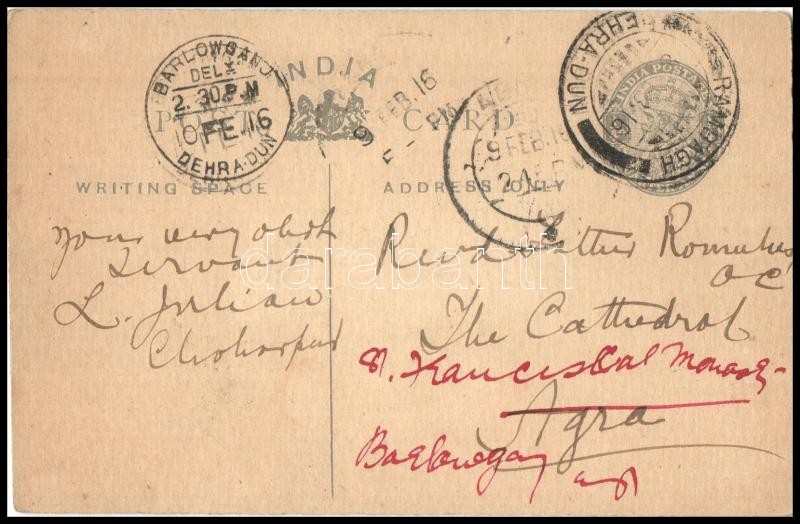 INDIA
POST CARD
WRITING SPACE
ADDRESS ONLY
BARLOWGANJ
DEL
2.30 P.M
10 FE.16
DEHRA-DUN
9 FEB.16
9 FEB.16
RAMBAGH
DEHRA-DUN
INDIA POSTAGE
your very obdt
Servant
L. Julian
Choharpur
Revd Father Romulus
OC
The Cathedral
Agra
St. Franciscal
Barlowganj
darabanth